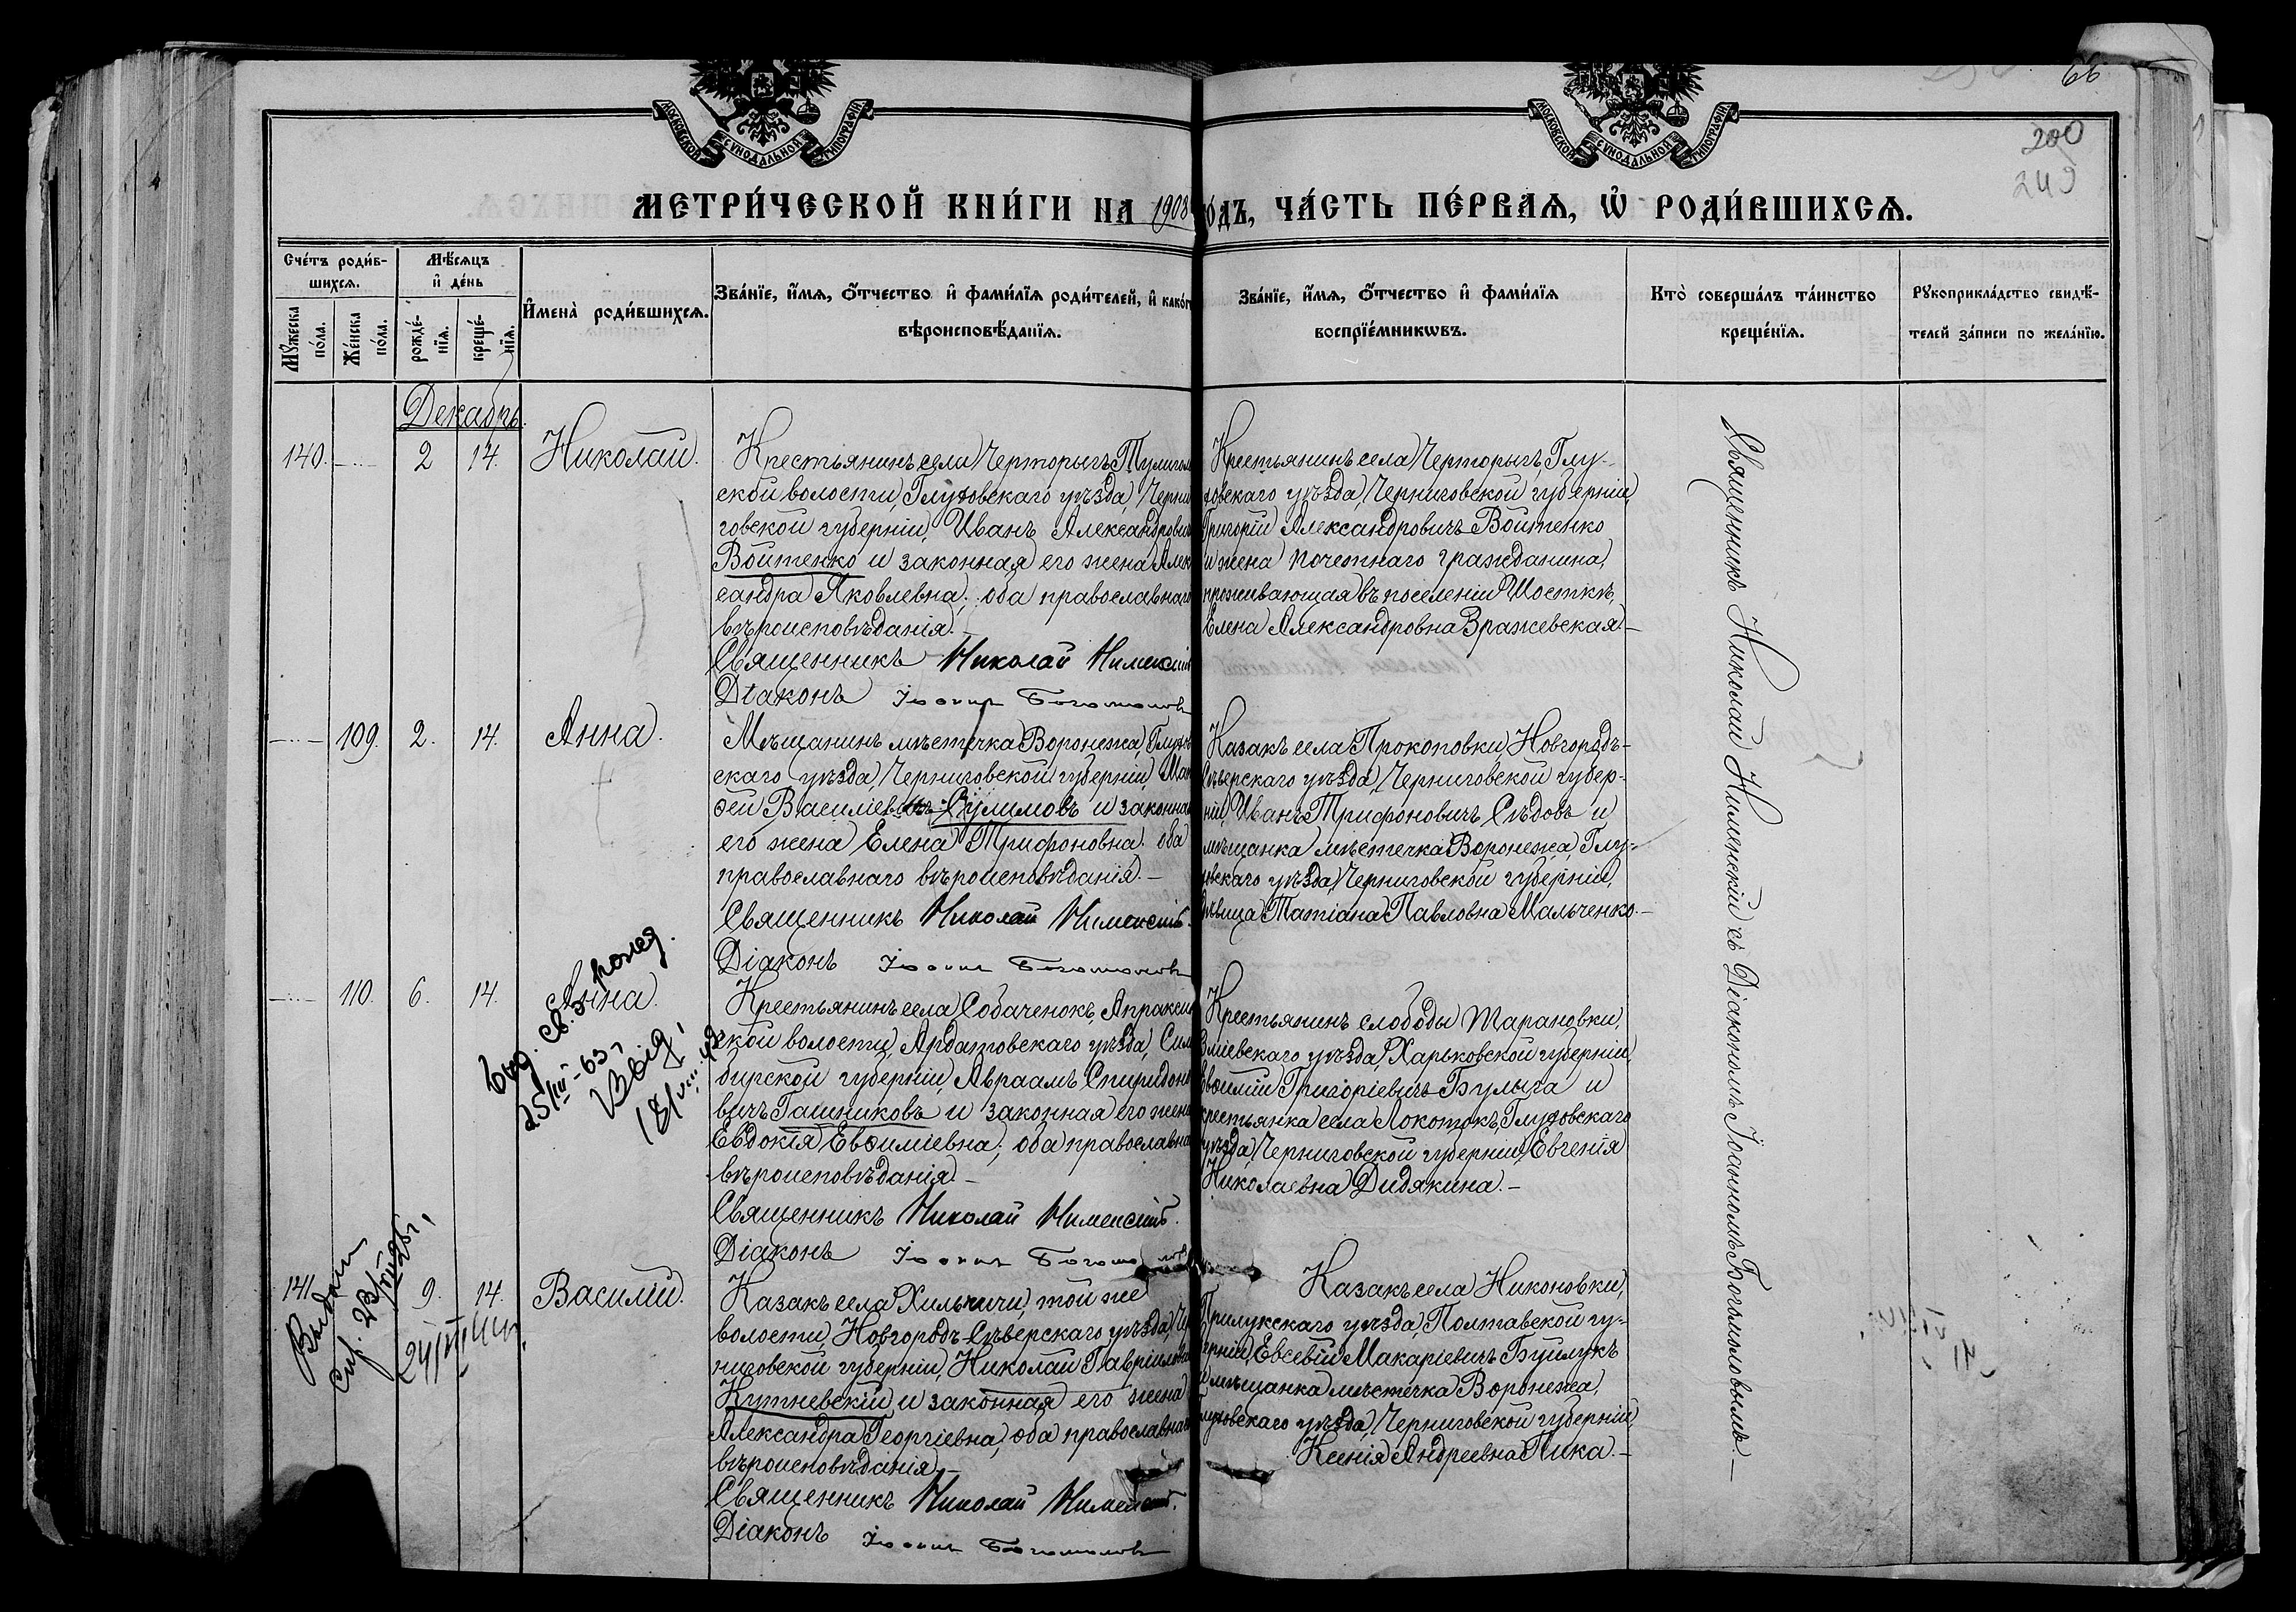 66
200
249
МОСКОВСКОЙ СѴНОДАЛЬНОЙ ТИПОГРАФІИ
МОСКОВСКОЙ СѴНОДАЛЬНОЙ ТИПОГРАФІИ
МЕТРИ́ЧЕСКОЙ КНИ́ГИ НА 1908 ГО́ДЪ, ЧА́СТЬ ПЕ́РВАѦ, Ѡ РОДИ́ВШИХСѦ.
Сче́тъ роди́в-
шихсѧ.
Мꙋ́жеска по́ла.
Же́нска по́ла.
Мѣ́сѧцъ
и҆ де́нь
рожде́-
нїѧ.
креще́-
нїѧ.
И҆мена̀ роди́вшихсѧ.
Зва́нїе, и҆́мѧ, ѻ҆́тчество и҆ фами́лїѧ роди́телей, и҆ како́гѡ
вѣроисповѣ́данїѧ.
Зва́нїе, и҆́мѧ, ѻ҆́тчество и҆ фами́лїѧ
воспрїе́мникѡвъ.
Кто̀ соверша́лъ та́инство
креще́нїѧ.
Рꙋкоприкла́дство свидѣ́-
телей за́писи по жела́нїю.
Декабрь.
140. 2 14. Николай.
Крестьянинъ села Черторыгъ, Тулиголов
ской волости, Глуховскаго уѣзда, Черни
говской губерніи, Иванъ Александровичъ
Войтенко и законная его жена Алек
сандра Яковлевна; оба православнаго
вѣроисповѣданія.
Священникъ Николай Нименскій
Діаконъ Іоаннъ Богомоловъ
Крестьянинъ села Черторыгъ, Глу-
ховскаго уѣзда, Черниговской губерніи,
Григорій Александровичъ Войтенко
и жена почетнаго гражданина,
проживающая въ поселеніи Шосткѣ,
Елена Александровна Вражевская.
109. 2. 14. Анна.
Мѣщанинъ мѣстечка Воронежа, Глухов
скаго уѣзда, Черниговской губерніи, Мат
ѳей Василіевичъ Сулимовъ и законная
его жена Елена Трифоновна; оба
православнаго вѣроисповѣданія.
Священникъ Николай Нименскій.
Діаконъ Іоаннъ Богомоловъ
Казакъ села Прокоповки, Новгородъ-
Сѣверскаго уѣзда, Черниговской губер-
ніи, Иванъ Трифоновичъ Сѣдовъ и
мѣщанка мѣстечка Воронежа, Глу-
ховскаго уѣзда, Черниговской губерніи,
дѣвица Татіана Павловна Мальченко.
110. 6. 14. Анна.
Выд. св.
25/III-63
Крестьянинъ села Собаченокъ, Апраксин
ской волости, Ардатовскаго уѣзда, Сим
бирской губерніи, Авраамъ Спиридоно
вичъ Гашниковъ и законная его жена
Евдокія Евѳиміевна; оба православна
вѣроисповѣданія.
Священникъ Николай Нименскій.
Діаконъ Іоаннъ Богомоловъ
Крестьянинъ слободы Тарановки,
Зміевскаго уѣзда, Харьковской губерніи
Евѳимій Григоріевичъ Булыга и
крестьянка села Локотокъ, Глуховскаго
уѣзда, Черниговской губерніи, Евгенія
Николаевна Дидякина.
141. 9. 14. Василій.
Выдан
Казакъ села Хильчичи, той же
волости, Новгородъ-Сѣверскаго уѣзда, Чер
ниговской губерніи, Николай Гавріиловичъ
Кутневскій и законная его жена
Александра Георгіевна; оба православнаго
вѣроисповѣданія.
Священникъ Николай Нименскій.
Діаконъ Іоаннъ Богомоловъ
Казакъ села Никоновки,
Прилукскаго уѣзда, Полтавской гу-
берніи, Евсевій Макаріевичъ Буйлукъ
и мѣщанка мѣстечка Воронежа,
Глуховскаго уѣзда, Черниговской губерніи
Ксенія Андреевна Пика.
Священникъ Николай Нименскій съ Діакономъ Іоанномъ Богомоловымъ.